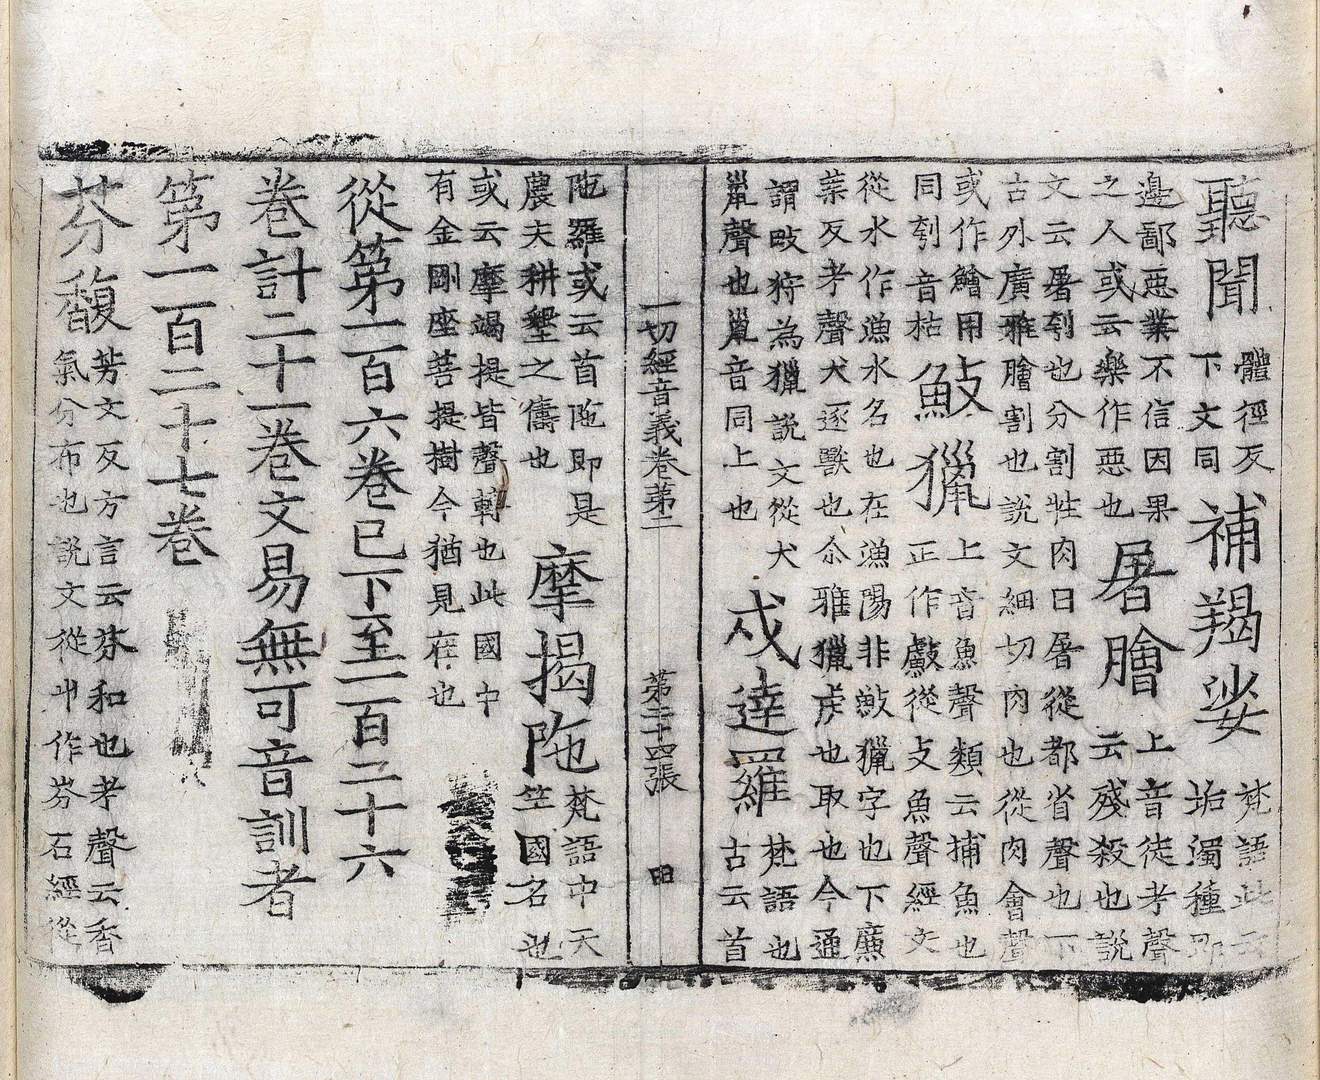 聽聞體徑反下文同補羯娑梵語此云垢濁種即
邊鄙惡業不信因果之人或云樂作惡也屠膾上音徒考聲云殘殺也說
文云屠刳也分割牲肉曰屠從都省聲也下古外廣雅膾割也說文細切肉也從肉會聲
或作鱠用同刳音枯䱷獵上音魚聲類云捕魚也正作䱷從攴魚聲經文
從水作漁水名也在漁陽非䱷獵字也下廉葉反考聲犬逐獸也尒雅獵虐也取也今通
謂畋狩為獵說文從犬巤聲也巤音同上也戍達羅梵語也古云首
一切經音義卷第二 第二十四張 田
陁羅或云首陁即是農夫耕墾之儔也摩揭陁梵語中天竺國名也
或云摩竭提皆聲轉也此國中有金剛座菩提樹今猶見在也
從第一百六卷已下至一百二十六
卷計二十一卷文易無可音訓者
第一百二十七卷
芬馥芳文反方言云芬和也考聲云香氣分布也說文從屮作芬石經從